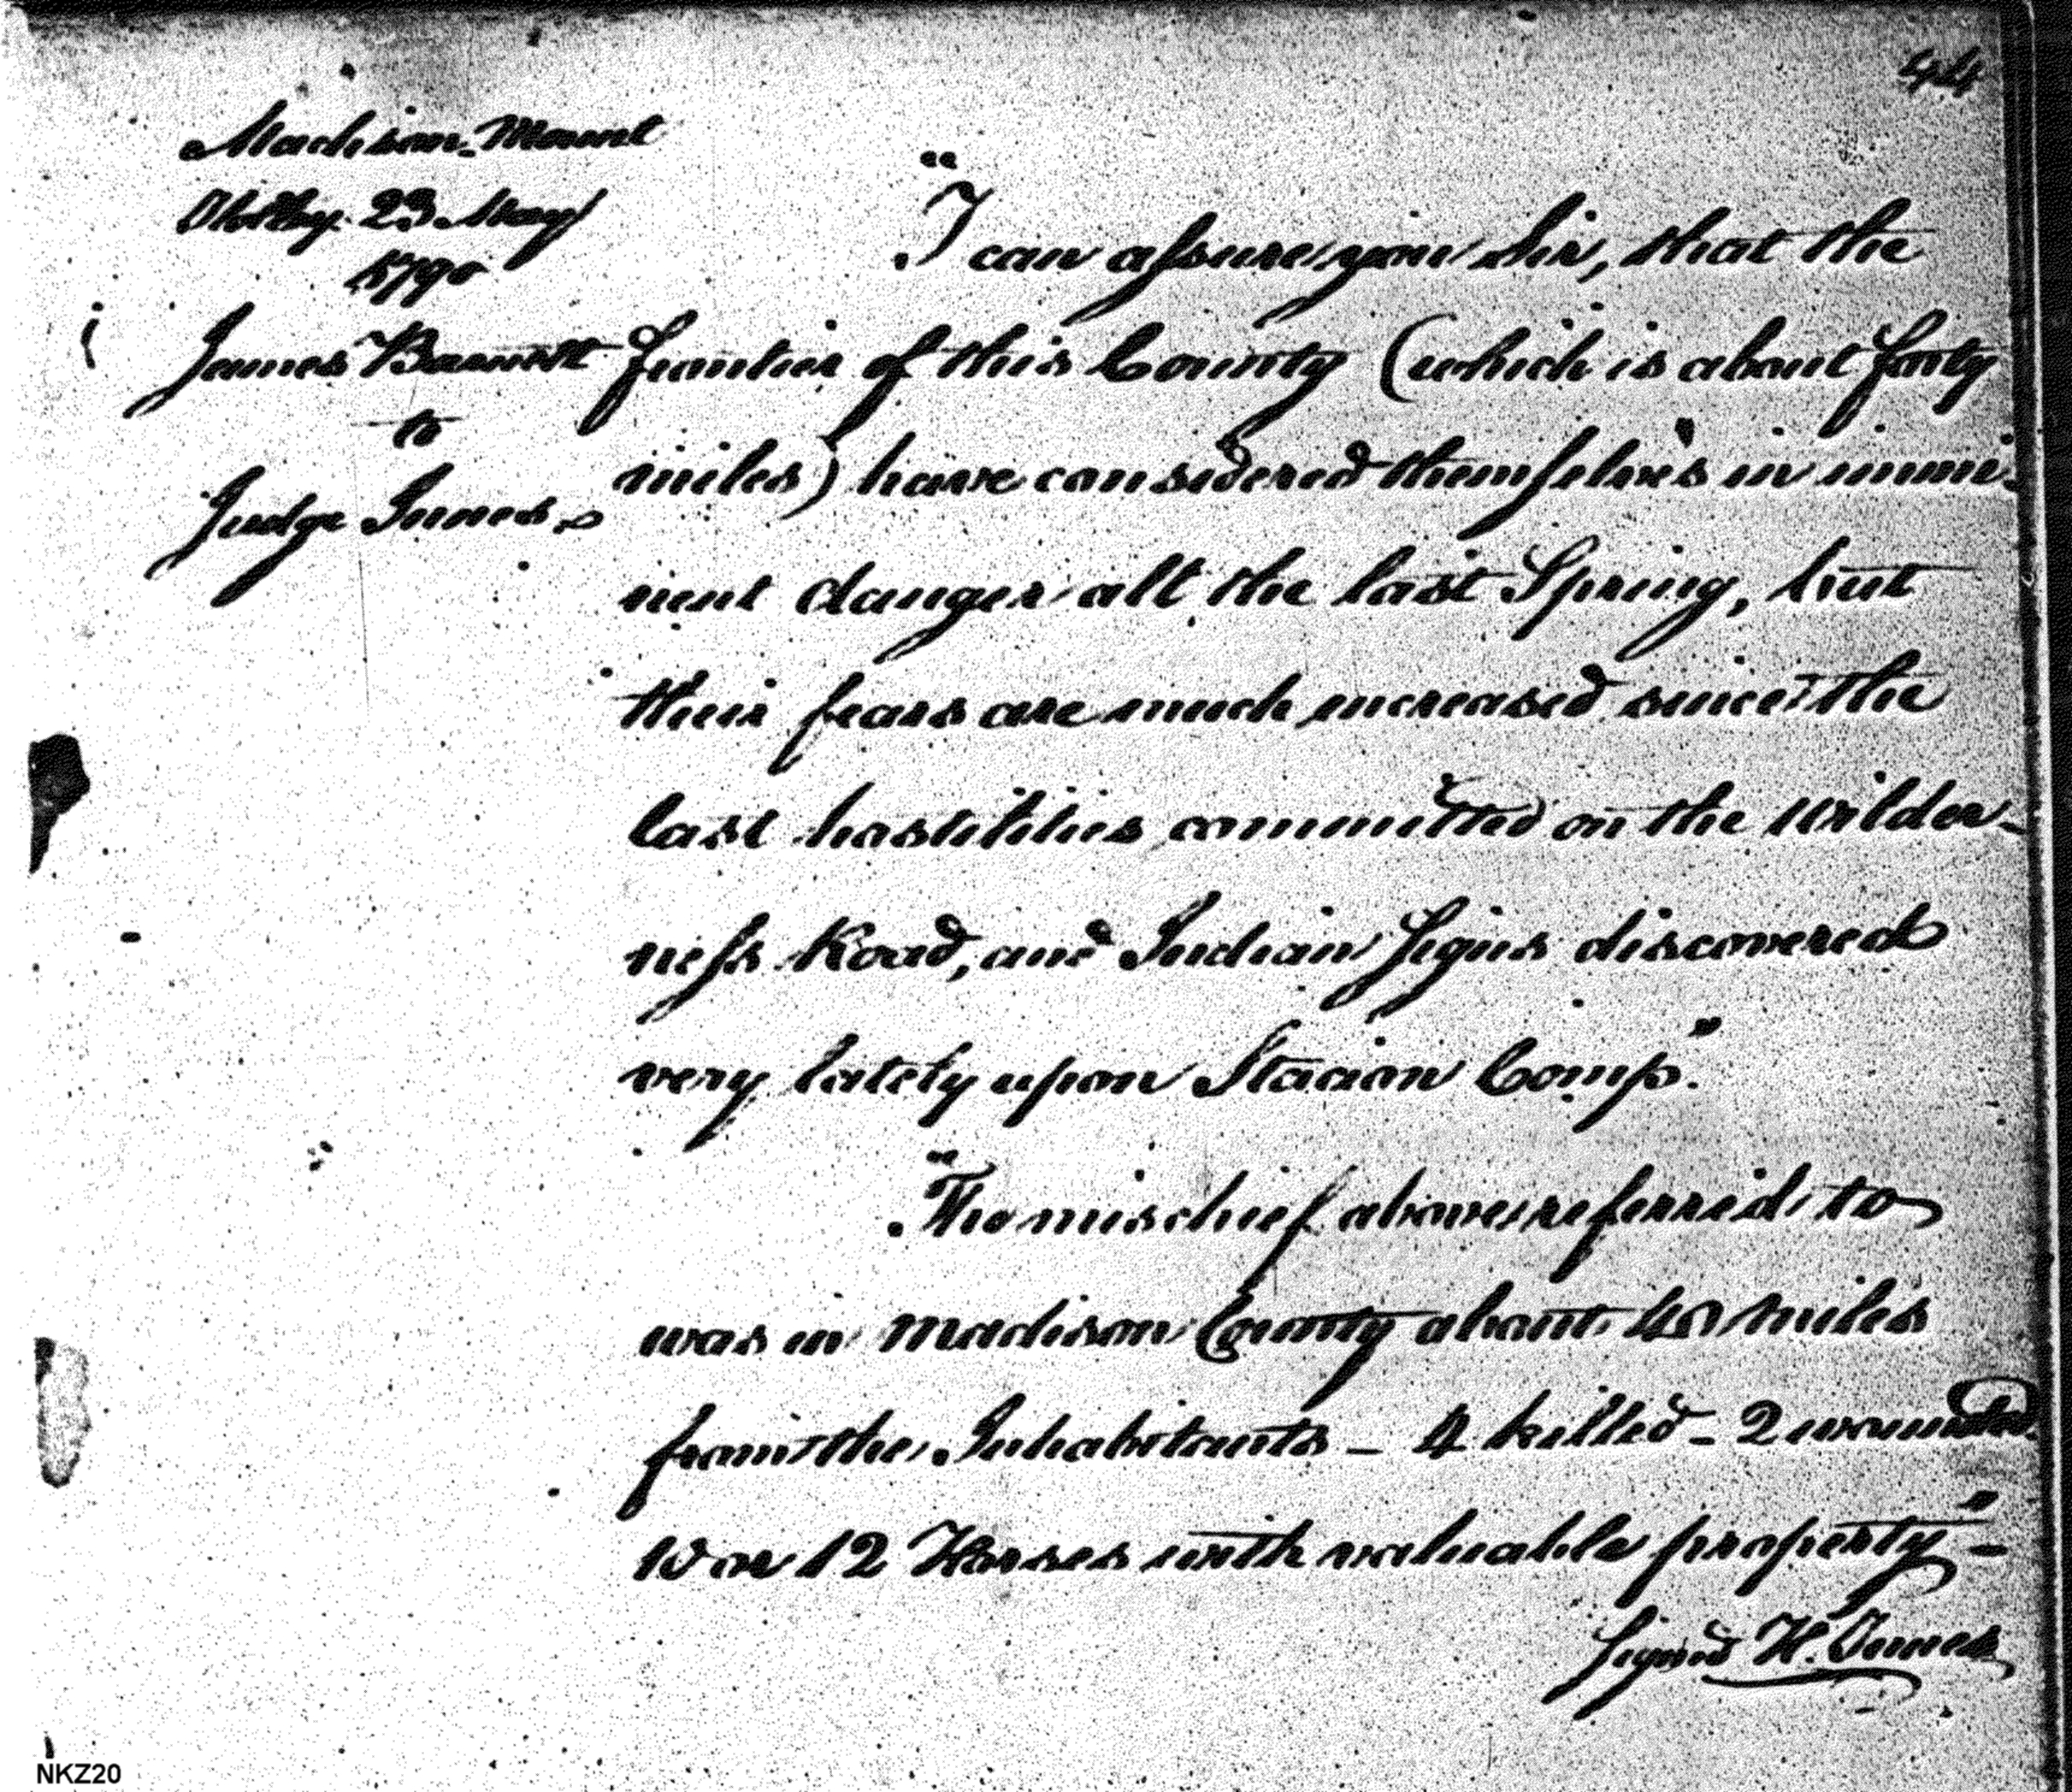 44
Madison Mount
23 May
1790
James Barnett
to
Judge Innes
"I can assure you Sir, that the
frontier of this County (which is about forty
miles) have considered themselves in immi-
nent danger all the last Spring, but
their fears are much increased since the
last hostilities committed on the wilder-
ness Road, and Indian Signs discovered
very lately upon Station Camp."
"The mischief above referred to
was in Madison County about 40 miles
from the Inhabitants – 4 killed – 2 wounded
10 or 12 Horses with valuable property" –
Signed H. Innes
NKZ20